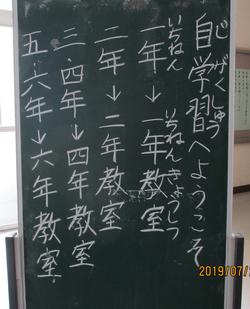 じ がくしゅう
自学習へようこそ
いちねん いちねんきょうしつ
一年→一年教室
二年→二年教室
三・四年→四年教室
五・六年→六年教室
2019/07/